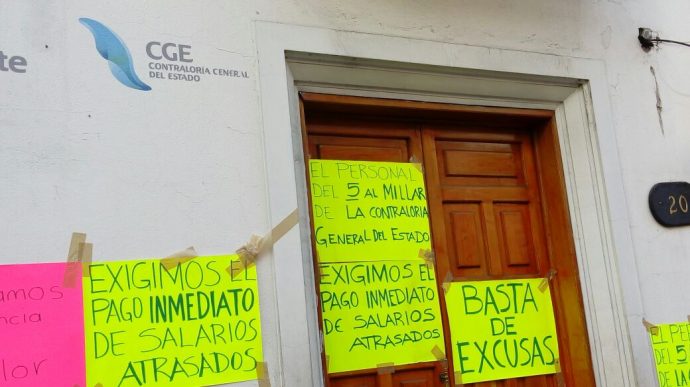 te
CGE
CONTRALORÍA GENERAL
DEL ESTADO
EL PERSONAL
DEL 5 AL MILLAR
DE LA CONTRALORIA
GENERAL DEL ESTADO
EXIGIMOS EL
PAGO INMEDIATO
DE SALARIOS
ATRASADOS
EXIGIMOS EL
PAGO INMEDIATO
DE SALARIOS
ATRASADOS
BASTA
DE
EXCUSAS
20
amos
ncia
lor
EL PE
DEL 5
DE LA